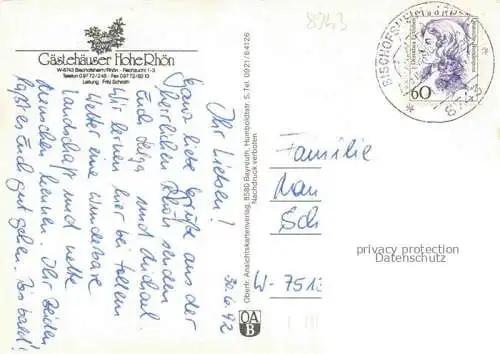 8943
Gästehäuser Hohe Rhön
W-8743 Bischofsheim/Rhön - Rechazucht 1-3
Telefon 09772/248 - Fax 09772/8210
Leitung: Fritz Schrath
30.6.92
Ihr Lieben!
Ganz liebe Grüße aus der
herrlichen Rhön senden
Euch Helga und Michael.
Wir lernen hier bei tollem
Wetter eine wunderbare
Landschaft und nette
Menschen kennen. Ihr Beiden
laßt es Euch gut gehen. Bis bald!
Oberfr. Ansichtskartenverlag, 8580 Bayreuth, Humboldtstr. 5, Tel. 0921/64126
Nachdruck verboten
OA
B
BISCHOFSHEIM
60
Familie
Man
Sch
W-7513
privacy protection
Datenschutz